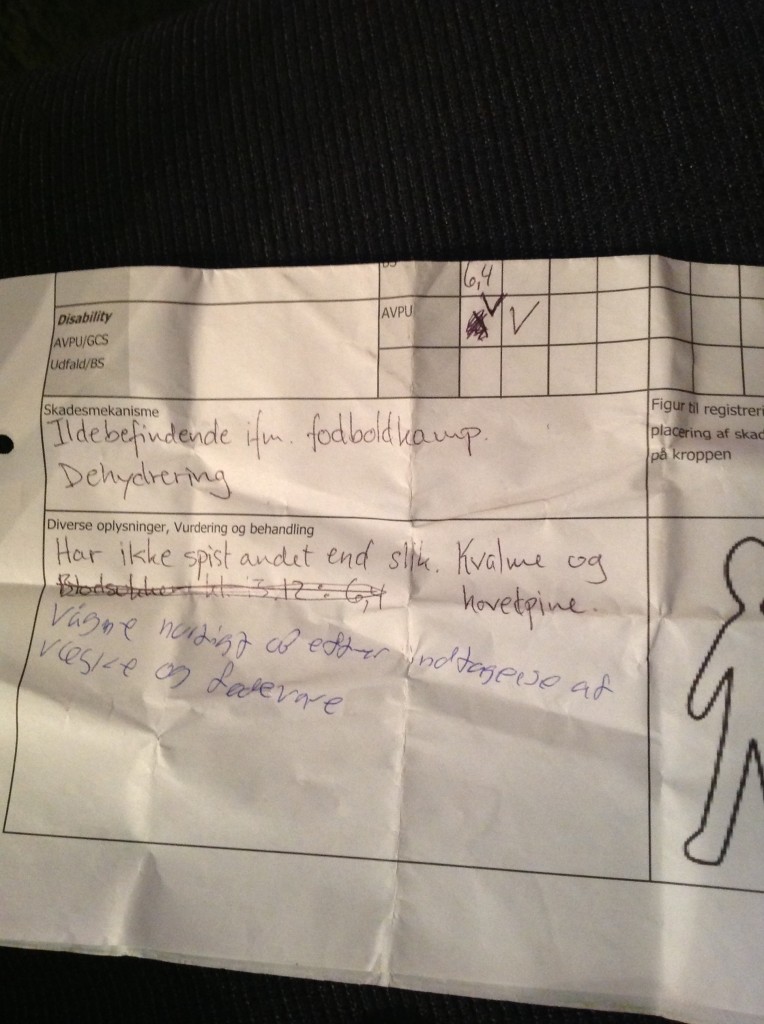 BS
6,4
Disability
AVPU/GCS
Udfald/BS
AVPU
Skadesmekanisme
Ildebefindende ifm. fodboldkamp.
Dehydrering
Figur til registreri
placering af skad
på kroppen
Diverse oplysninger, Vurdering og behandling
Har ikke spist andet end slik. Kvalme og
hovetpine.
Blodsukker kl. 13.12: 6,4
Vågne hurtigt op efter indtagelse af
væske og fødevare